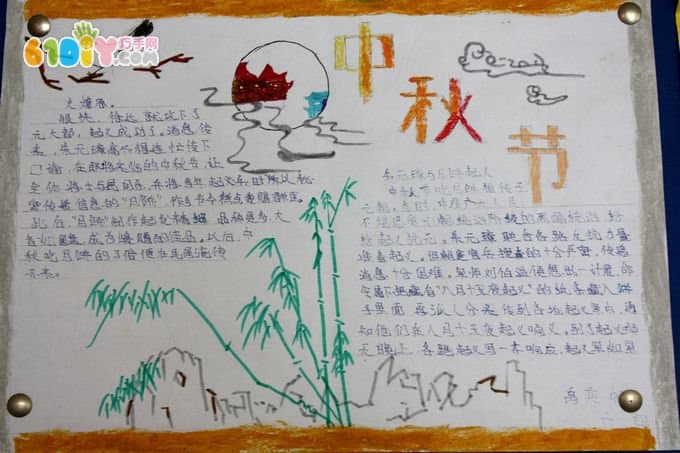 61DIY巧手网
中秋节
火燎原。
很快,徐达就攻下了
元大都,起义成功了。消息传
来,朱元璋高兴得连忙传下
口谕,在即将来临的中秋节,让
全体将士与民同乐,并将当年起义时以秘
密传递信息的"月饼",作为节令糕点赏赐群臣。
此后,"月饼"制作越发精细,品种更多,大
者如圆盘,成为馈赠的佳品。以后,中
秋吃月饼的习俗便在民间流传
开来。
朱元璋与月饼起义
中秋节吃月饼相传始
于元朝。当时,中原广大人民
不堪忍受元朝统治阶级的黑暗统治,纷
纷起义抗元。朱元璋联合各路反抗力量
准备起义。但朝庭官兵搜查的十分严密,传递
消息十分困难。军师刘伯温便想出一计策,命
令属下把藏有"八月十五夜起义"的纸条藏入饼
子里面,再派人分头传到各地起义军中,通
知他们在八月十五夜起义响应。到了起义的那
天晚上,各路起义军一齐响应,起义军如星